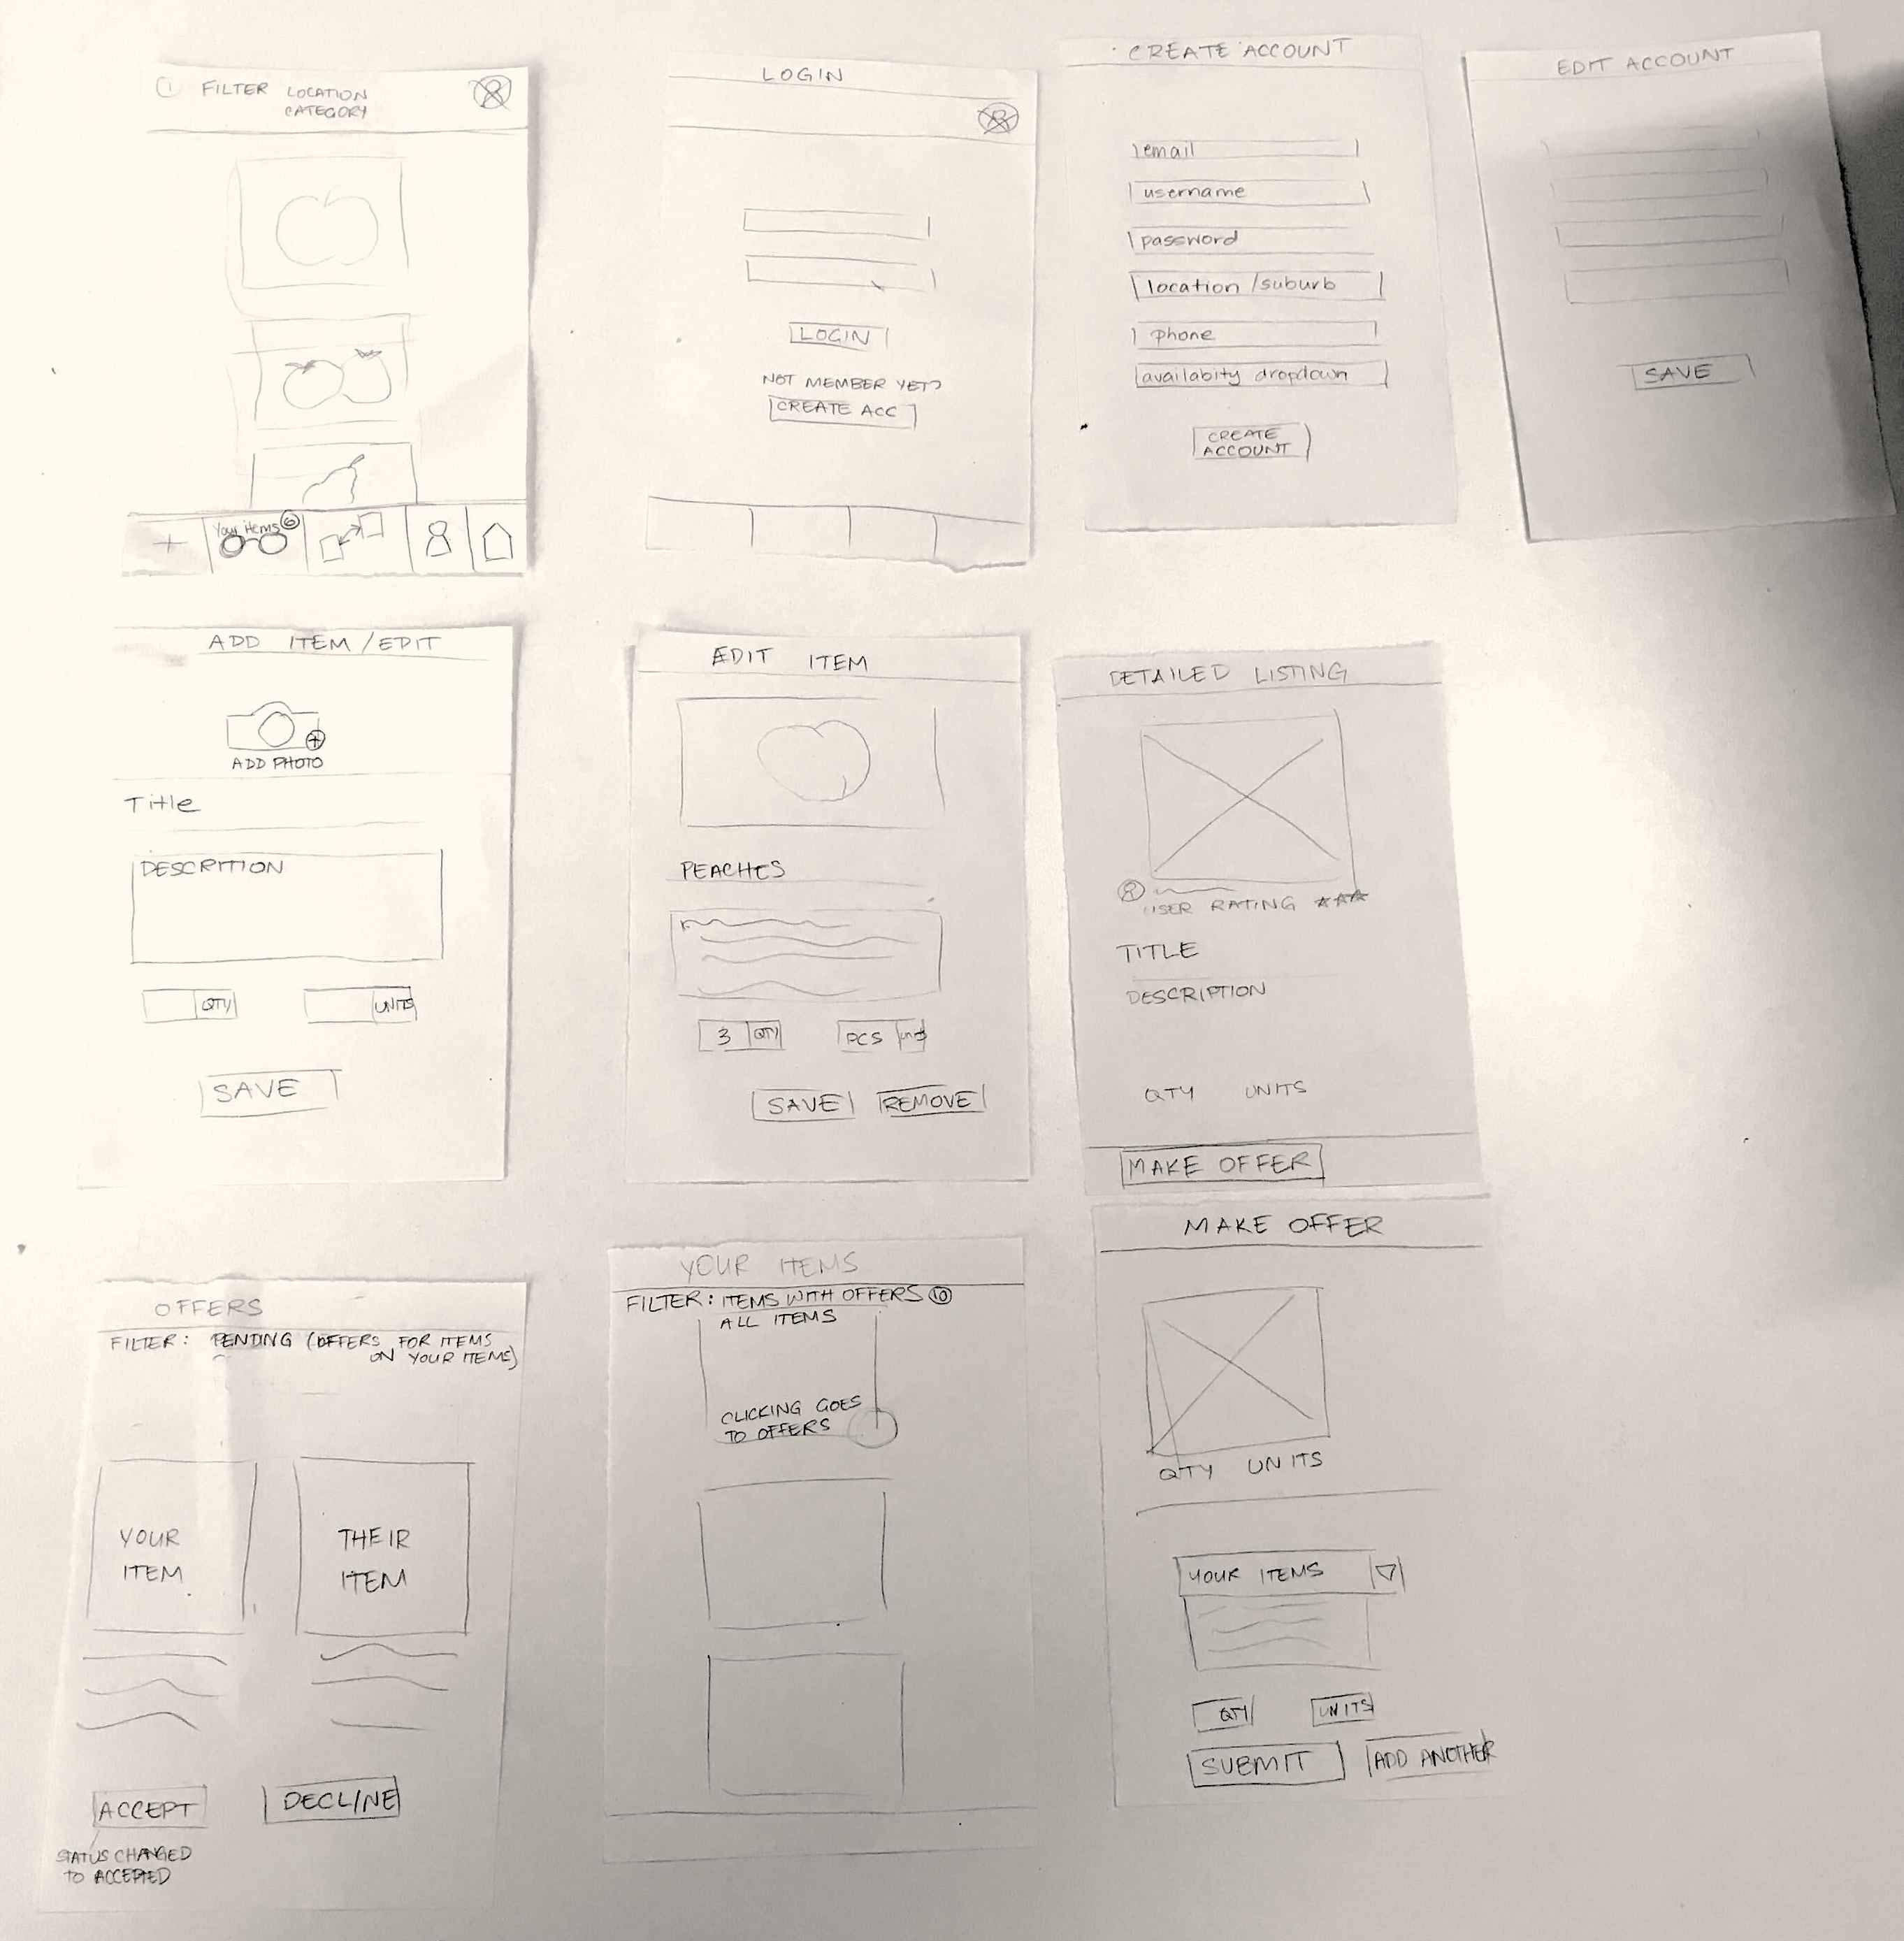 1 FILTER LOCATION
CATEGORY
Your items 6
LOGIN
LOGIN
NOT MEMBER YET?
CREATE ACC
CREATE ACCOUNT
email
username
password
location /suburb
phone
availabity dropdown
CREATE
ACCOUNT
EDIT ACCOUNT
SAVE
ADD ITEM/EDIT
ADD PHOTO
Title
DESCRITION
QTY UNITS
SAVE
EDIT ITEM
PEACHES
3 QTY PCS
SAVE REMOVE
DETAILED LISTING
USER RATING
TITLE
DESCRIPTION
QTY UNITS
MAKE OFFER
OFFERS
FILTER: PENDING (OFFERS FOR ITEMS
ON YOUR ITEMS)
YOUR
ITEM
THEIR
ITEM
ACCEPT DECLINE
STATUS CHANGED
to ACCEPTED
YOUR ITEMS
FILTER: ITEMS WITH OFFERS 10
ALL ITEMS
CLICKING GOES
TO OFFERS
MAKE OFFER
QTY UNITS
YOUR ITEMS
QTY UNITS
SUBMIT ADD ANOTHER